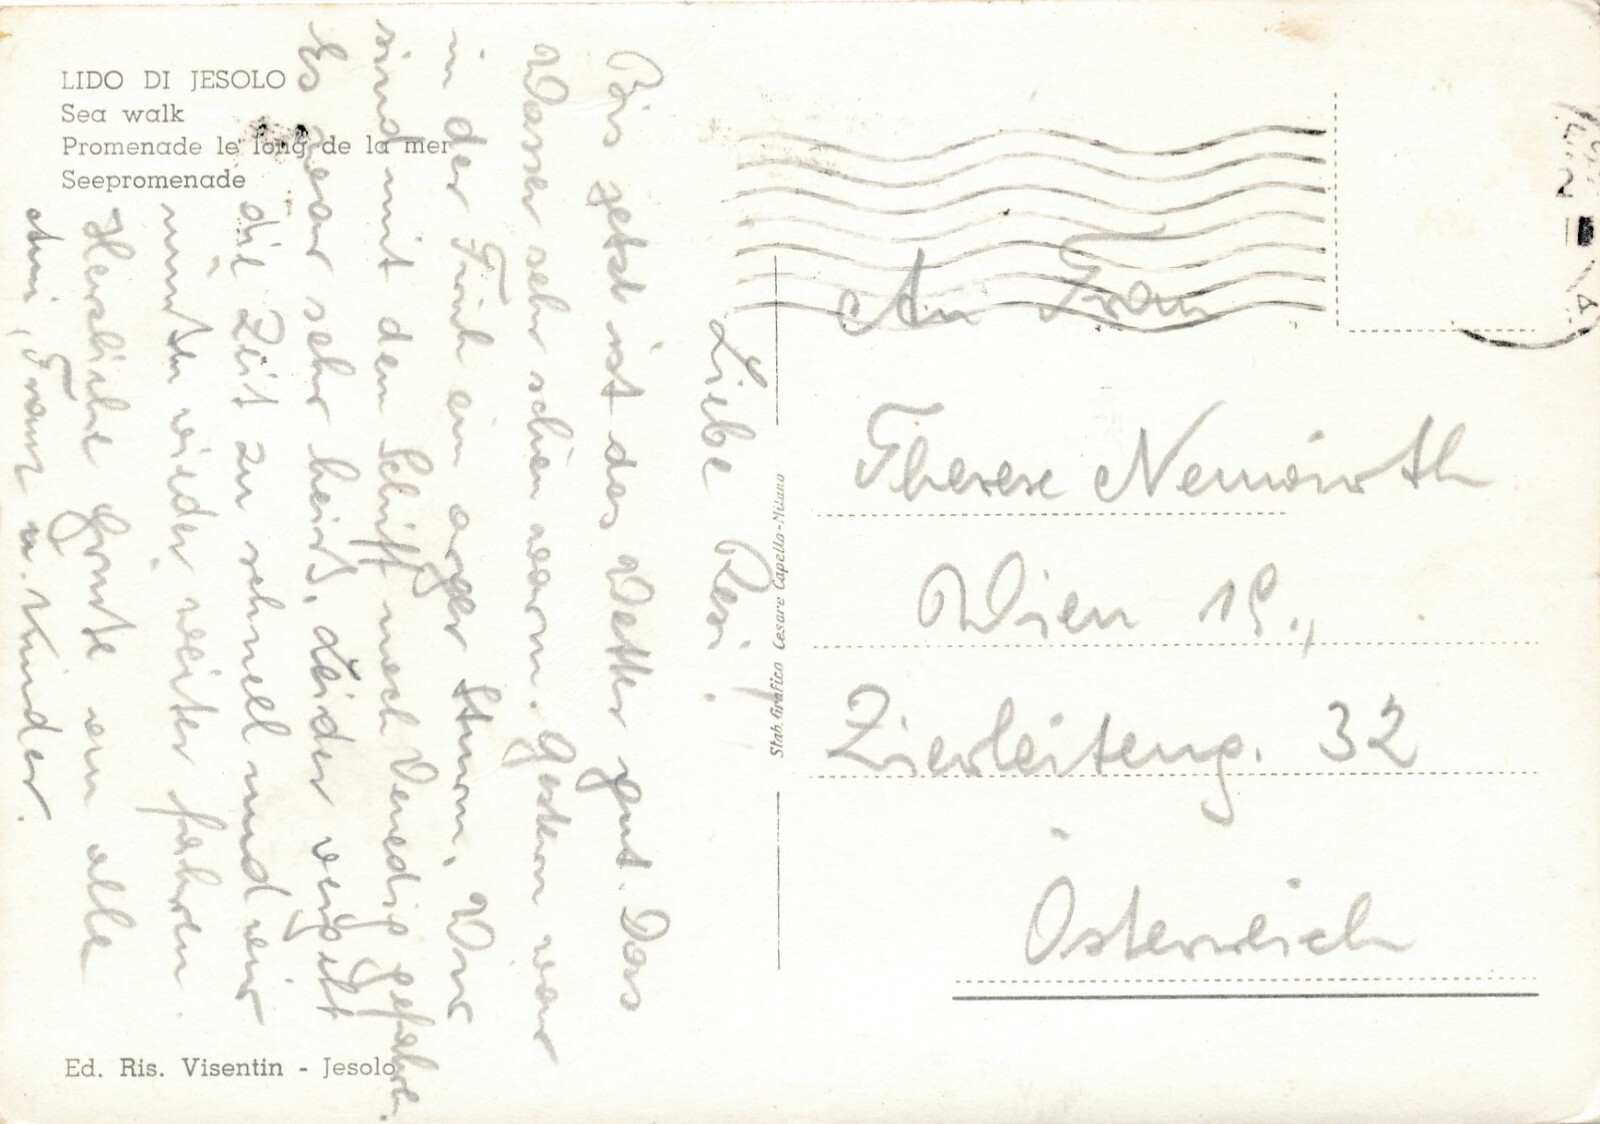 LIDO DI JESOLO
Sea walk
Promenade le long de la mer
Seepromenade
Liebe Resi.
Bis jetzt ist das Wetter gut. Das
Wasser sehr schön warm. Gestern war
in der Früh ein arger Sturm. Wir
sind mit dem Schiff nach Venedig gefahren.
Es war sehr heiß. Leider vergeht
die Zeit zu schnell und wir
müssen wieder weiter fahren.
Herzliche Grüße an alle
Franz u. Kinder.
Ed. Ris. Visentin - Jesolo
Stab. Grafico Cesare Capello-Milano
An Frau
Therese Nemwirth
Wien 19.,
Zierleiteng. 32
Österreich